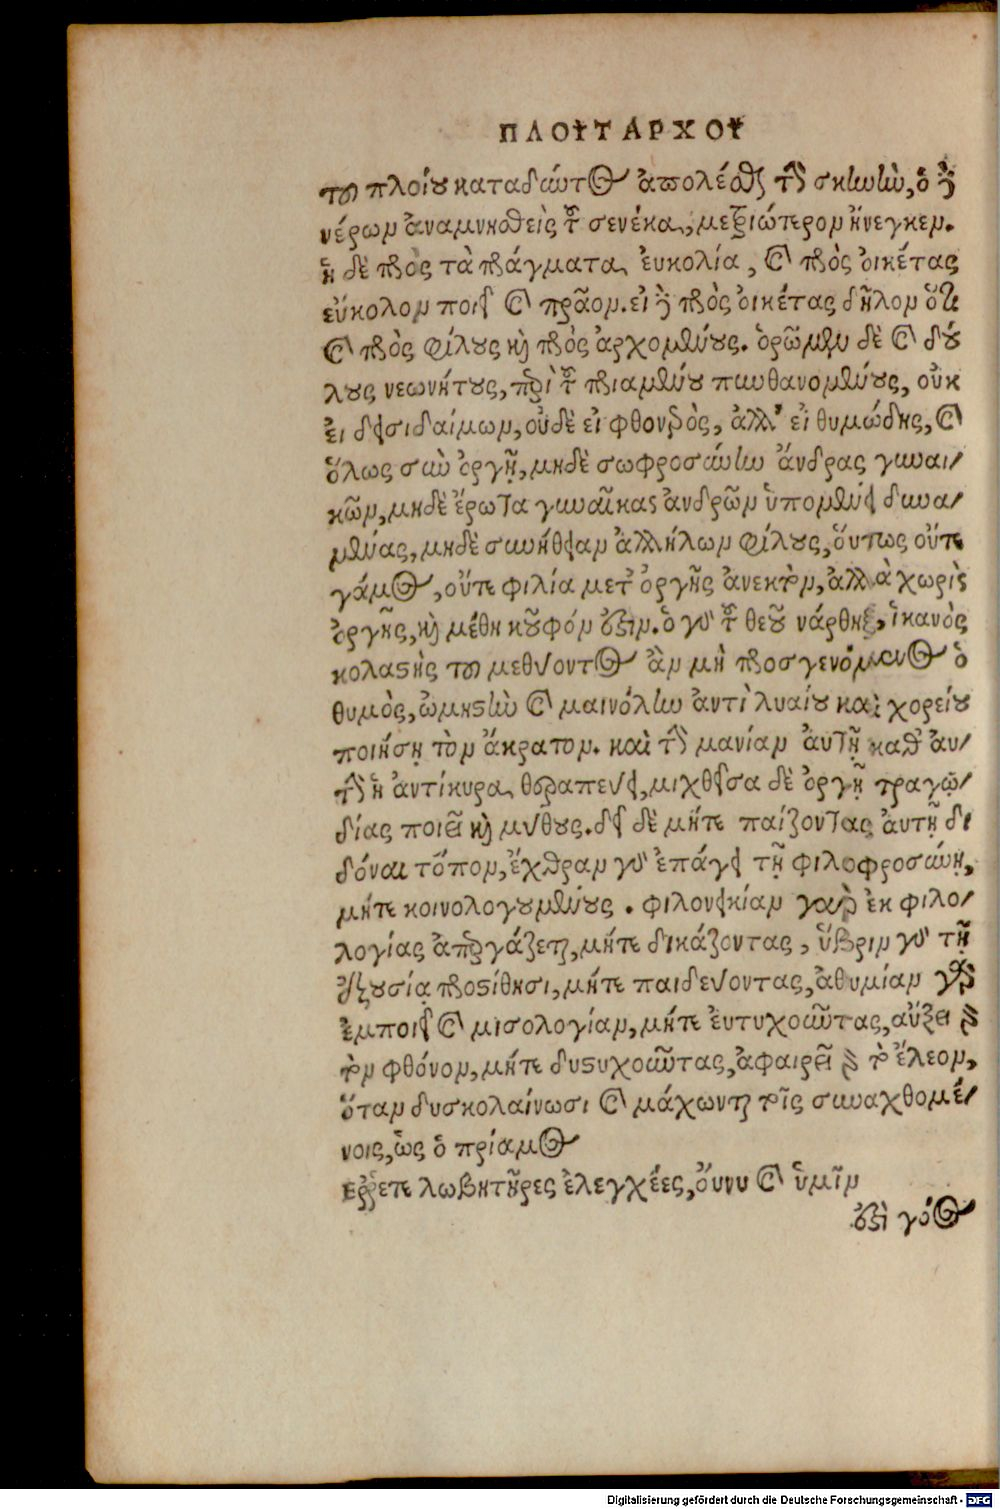 ΠΛΟΥΤΑΡΧΟΥ
τοῦ πλοίου καταδύντος ἀπολέσθαι τὴν σκηνὴν, ὁ δὲ
νέρων ἀναμνησθεὶς τοῦ σενέκα, μετριώτερον ἤνεγκεν.
ἡ δὲ πρὸς τὰ πράγματα εὐκολία, καὶ πρὸς οἰκέτας
εὔκολον ποιεῖ καὶ πρᾶον. εἰ δὲ πρὸς οἰκέτας δῆλον ὅτι
καὶ πρὸς φίλους καὶ πρὸς ἀρχομένους. ὁρῶμεν δὲ καὶ δού
λους νεωνήτους, περὶ τοῦ πριαμένου πυνθανομένους, οὐκ
εἰ δεισιδαίμων, οὐδὲ εἰ φθονερὸς, ἀλλ' εἰ θυμώδης, καὶ
ὅλως σὺν ὀργῇ, μηδὲ σωφροσύνην ἄνδρας γυναι/
κῶν, μηδὲ ἔρωτα γυναῖκας ἀνδρῶν ὑπομένειν δυνα/
μένας, μηδὲ συνήθειαν ἀλλήλων φίλους, οὕτως οὔτε
γάμος, οὔτε φιλία μετ' ὀργῆς ἀνεκτὸν, ἀλλὰ χωρὶς
ὀργῆς, καὶ μέθη κοῦφόν ἐστιν. ὁ γὰρ τοῦ θεοῦ νάρθηξ, ἱκανὸς
κολαστὴς τοῦ μεθύοντος ἂν μὴ προσγενόμενος ὁ
θυμὸς, ὠμηστὴν καὶ μαινόλην ἀντὶ λυαίου καὶ χορείου
ποιήσῃ τὸν ἄκρατον. καὶ τὴν μανίαν αὐτῇ καθ' αὑ/
τὴν ἡ ἀντίκυρα θεραπεύει, μιχθεῖσα δὲ ὀργῇ τραγῳ/
δίας ποιεῖ καὶ μύθους. δεῖ δὲ μήτε παίζοντας αὐτῇ δι
δόναι τόπον, ἔχθραν γὰρ ἐπάγει τῇ φιλοφροσύνῃ,
μήτε κοινολογουμένους. φιλονεικίαν γὰρ ἐκ φιλο/
λογίας ἀπεργάζεται, μήτε δικάζοντας, ὕβριν γὰρ τῇ
ἐξουσίᾳ προστίθησι, μήτε παιδεύοντας, ἀθυμίαν γὰρ
ἐμποιεῖ καὶ μισολογίαν, μήτε εὐτυχοῦντας, αὔξει γὰρ
τὸν φθόνον, μήτε δυστυχοῦντας, ἀφαιρεῖ γὰρ τὸν ἔλεον,
ὅταν δυσκολαίνωσι καὶ μάχωνται τοῖς συναχθομέ/
νοις, ὡς ὁ πρίαμος
ερῥετε λωβητῆρες ἐλεγχέες, οὔνυ καὶ ὑμῖν
ἐστὶ γόος
Digitalisierung gefördert durch die Deutsche Forschungsgemeinschaft - DFG